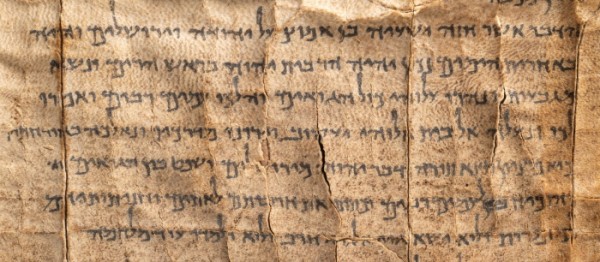 הדבר אשר חזה ישעיה בן אמוץ על יהודה וירושלים והיה
באחרית הימים נכון יהיה הר בית יהוה בראש הרים ונשא
מגבעות ונהרו כול הגואים והלכו עמים רבים ואמרו
לכו ונעלה אל בית אלוהי יעקוב וירונו מדרכיו ונלכה באורחותיו
כיא מציון תצא תורה ודבר יהוה מירושלים ושפט בין הגואים
והוכיח לעמים רבים וכתתו את חרבותם לאתים
למזמרות ולוא ישא גוי אל גוי חרב ולוא ילמדו עוד מלחמה